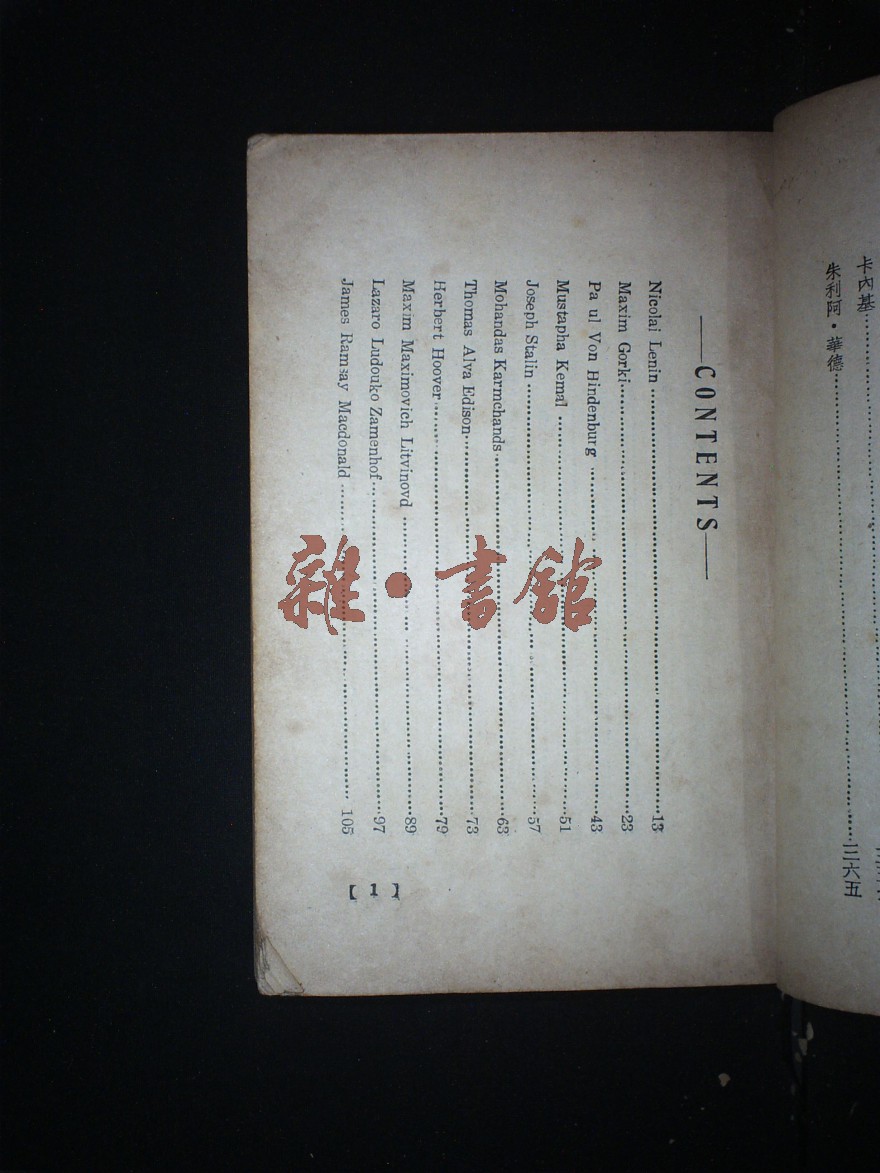 卡內基
朱利阿·華德……三六五
——CONTENTS——
Nicolai Lenin……13
Maxim Gorki……23
Pa ul Von Hindenburg……43
Mustapha Kemal……51
Joseph Stalin……57
Mohandas Karmchands……63
Thomas Alva Edison……73
Herbert Hoover……79
Maxim Maximovich Litvinovd……89
Lazaro Ludouko Zamenhof……97
James Ramsay Macdonald……105
【1】
雜·書館